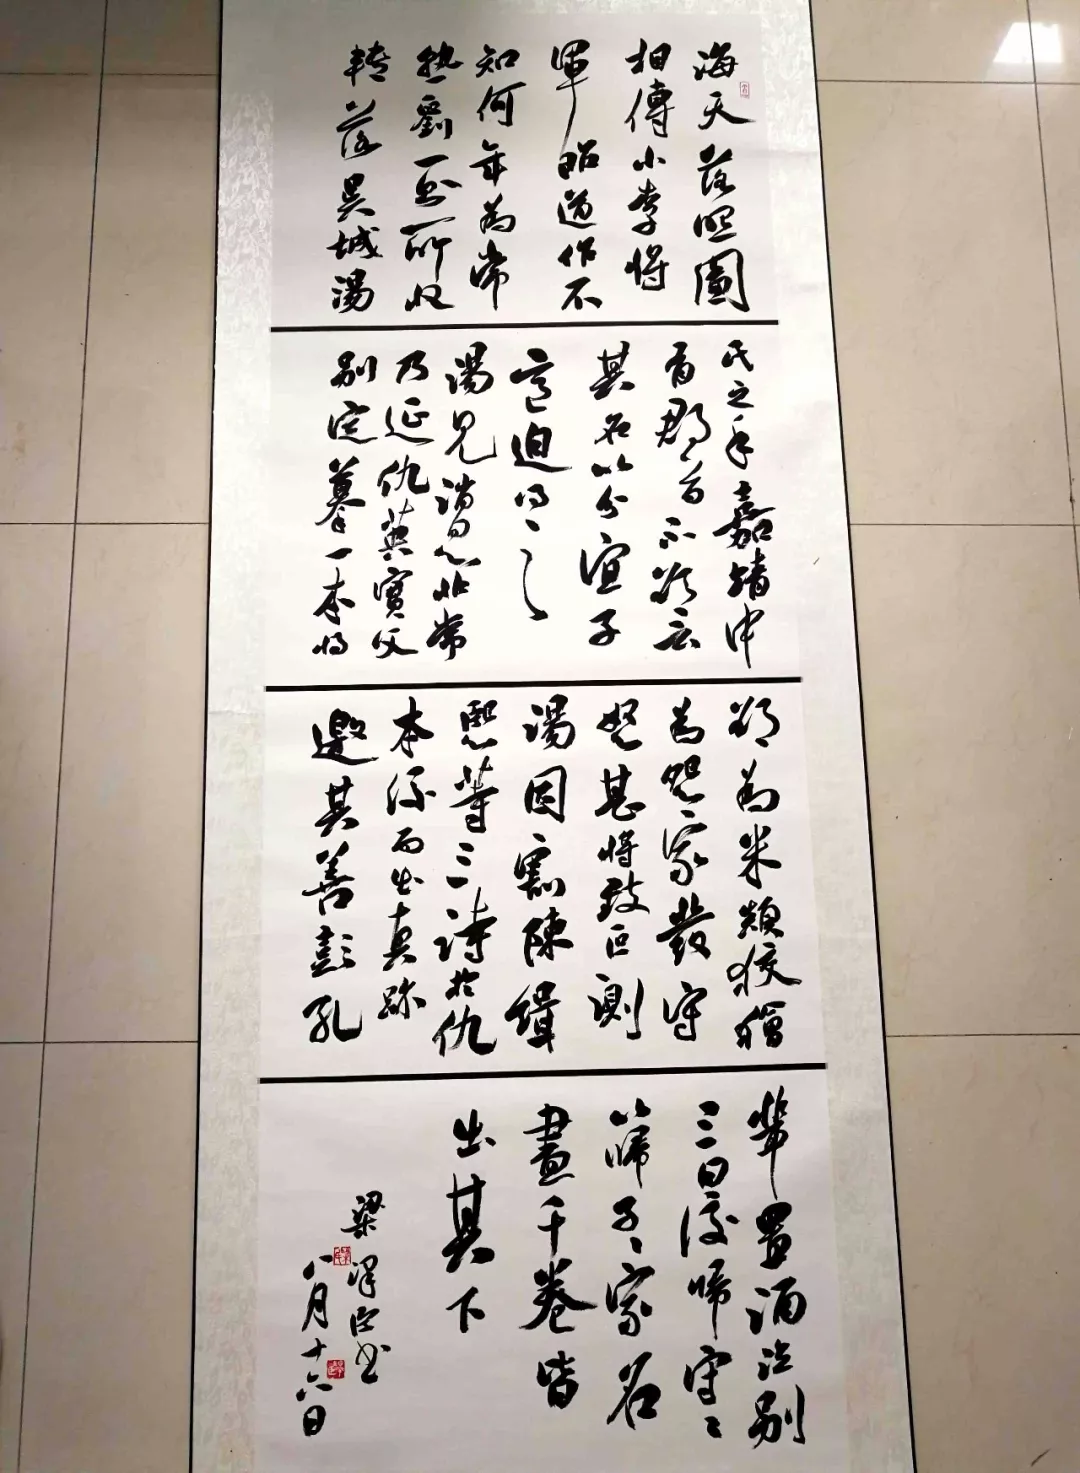 海天落照圖
相傳小李將
軍昭道作不
知何年為常
熟劉一所收
轉落吳城湯
氏之手嘉靖中
有郡守不欲言
其名以分宜子
意迫得之
湯見消息非常
乃延仇英實父
別室摹一本將
欲為米顛狡獪
為怨家發守
怒甚將致叵測
湯因割陳緝
熙等三詩於仇
本後而出真跡
邀其善彭孔
輩置酒泣別
三日後歸守〻
以歸子〻家名
畫千卷皆
出其下
梁澤書
八月十六日